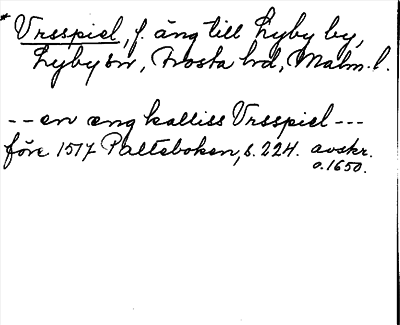 * Vrsspiel, f. äng till Lyby by,
Lyby sn, Frosta hd, Malm. l.
-- en eng kalliss Vrsspiel ---
före 1517 Palteboken, s. 224. avskr.
o. 1650.